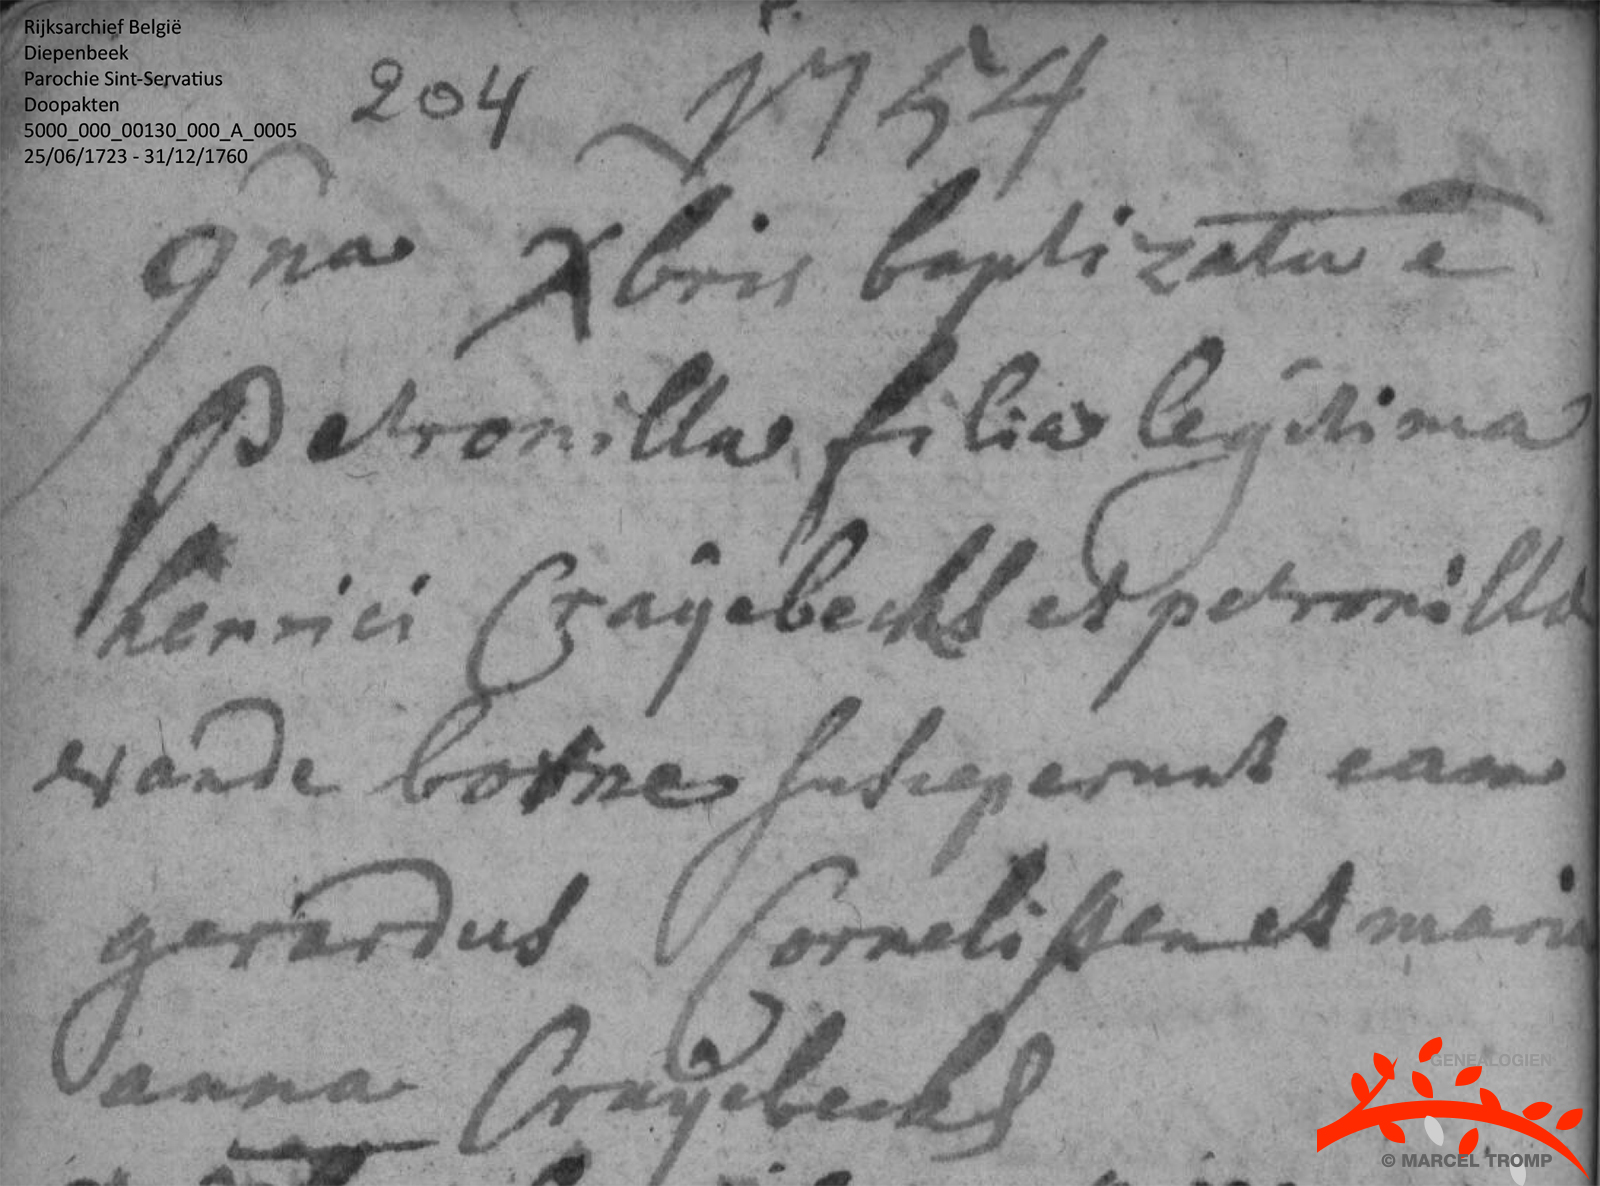 Rijksarchief België
Diepenbeek
Parochie Sint-Servatius
Doopakten
5000_000_00130_000_A_0005
25/06/1723 - 31/12/1760
204 1754
9na Xbris baptizatū ē
Petronilla filia legitima
henrici Craÿebecks et petronilla
vande borne susceperunt eam
gerardus Cornelissen et maria
anna Craÿebecks
GENEALOGIEN
© MARCEL TROMP